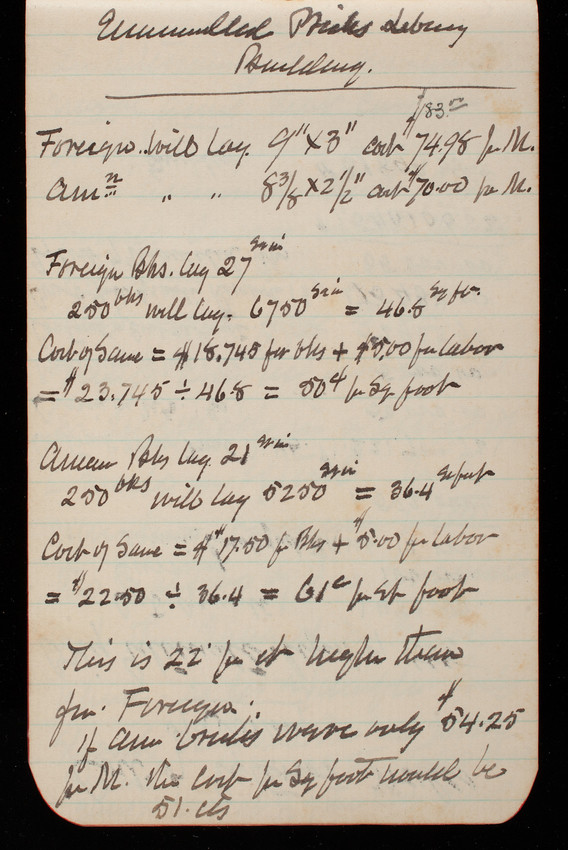 Enamelled Bricks Library
Building.
$83.00
Foreign will lay 9"x3" cost $74.98 per M.
Amn " " 8 3/8 x 2 1/2" cost $70.00 per M.
Foreign Bks. lay 27 sq in
250 bks will lay. 6750 sq in = 46.8 sq ft.
Cost of Same = $18.745 for bks + $5.00 for labor
= $23.745 ÷ 46.8 = 50¢ per Sq foot
Amean Bks lay 21 sq in
250 bks will lay 5250 sq in = 36.4 sq feet
Cost of Same = $17.50 for Bks + $5.00 for labor
= $22.50 ÷ 36.4 = 61c per sq foot
This is 22 per ct higher than
for Foreign.
if Am bricks were only $54.25
per M. the cost per Sq foot would be
51. cts